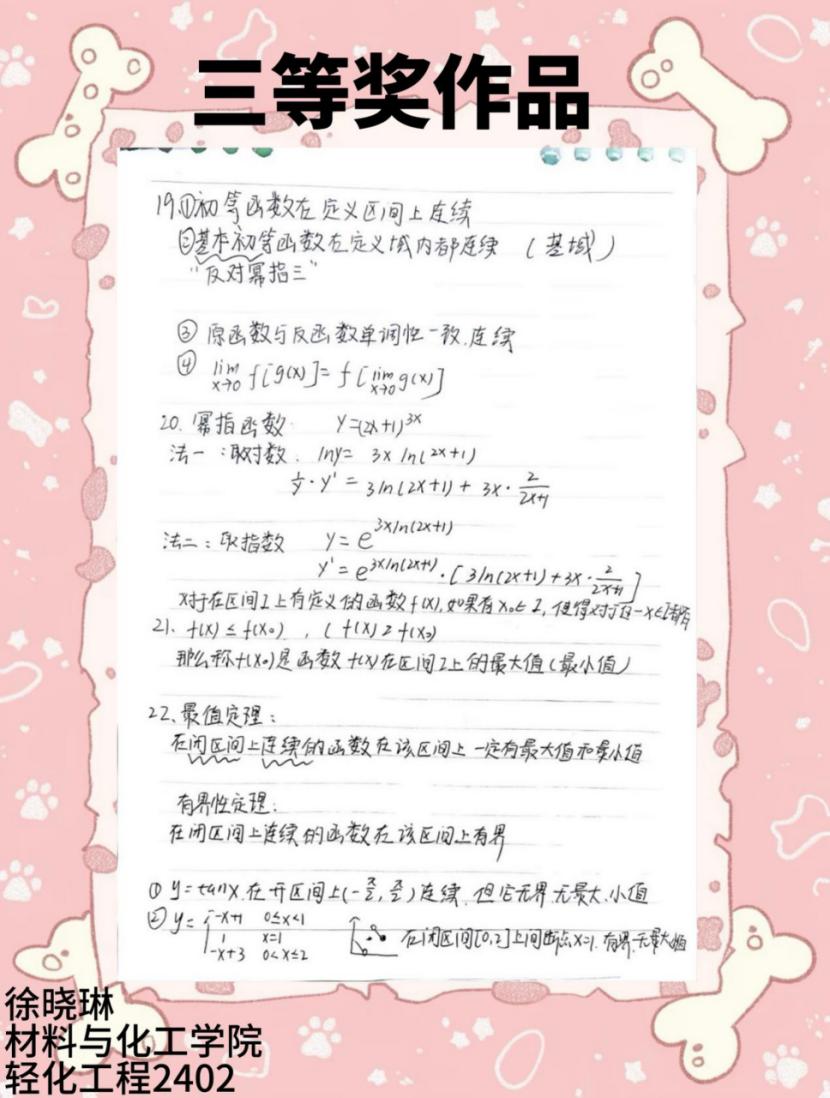 三等奖作品
19.①初等函数在定义区间上连续
②基本初等函数在定义域内都连续 (基域)
"反对幂指三"
③ 原函数与反函数单调性一致.连续
④ lim x→0 f[g(x)]=f[lim x→0 g(x)]
20. 幂指函数 y=(2x+1)^3x
法一:取对数. lny= 3x ln(2x+1)
1/y·y' = 3ln(2x+1) + 3x·2/(2x+1)
法二:取指数 y=e^3xln(2x+1)
y'=e^3xln(2x+1)·[3ln(2x+1)+3x·2/(2x+1)]
对于在区间I上有定义的函数f(x),如果有x₀∈I,使得对于任一x∈I都有
21. f(x)≤f(x₀) , (f(x)≥f(x₀)
那么称f(x₀)是函数f(x)在区间I上的最大值(最小值)
22、最值定理:
在闭区间上连续的函数在该区间上一定有最大值和最小值
有界性定理:
在闭区间上连续的函数在该区间上有界
① y=tanx.在开区间上(-π/2,π/2)连续.但它无界无最大.小值
② y= -x+1 0≤x<1
1 x=1
-x+3 0<x≤2
在闭区间[0,2]上间断点x=1.有界.无最大值
徐晓琳
材料与化工学院
轻化工程2402